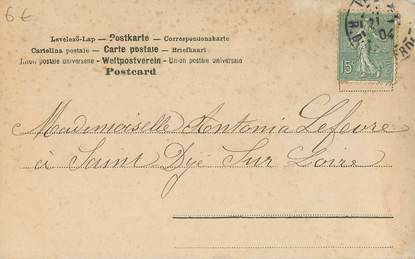 6€
Levelező-Lap — Postkarte — Correspondenzkarte
Cartolina postale — Carte postale — Briefkaart
Union postale universelle — Weltpostverein — Union postale universelle
Postcard
21
04
15
Mademoiselle Antonia Lefevre
à Saint Dyé Sur Loire